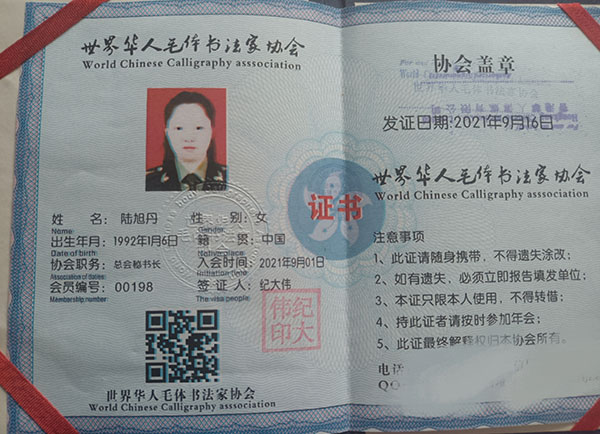 世界华人毛体书法家协会
World Chinese Calligraphy asssociation
姓 名: 陆旭丹 性 别: 女
Name Gender
出生年月: 1992年1月6日 籍 贯: 中国
Date of birth Native place
协会职务: 总会秘书长 入会时间: 2021年9月01日
Association of duties Initiation time
会员编号: 00198 签 证 人: 纪大伟
Membership number The visa people
伟纪
印大
世界华人毛体书法家协会
World Chinese Calligraphy asssociation
证书
协会盖章
发证日期:2021年9月16日
世界华人毛体书法家协会
World Chinese Calligraphy asssociation
注意事项
1、此证请随身携带，不得遗失涂改;
2、如有遗失、必须立即报告填发单位;
3、本证只限本人使用，不得转借;
4、持此证者请按时参加年会;
5、此证最终解释权归本协会所有。
电话
QQ